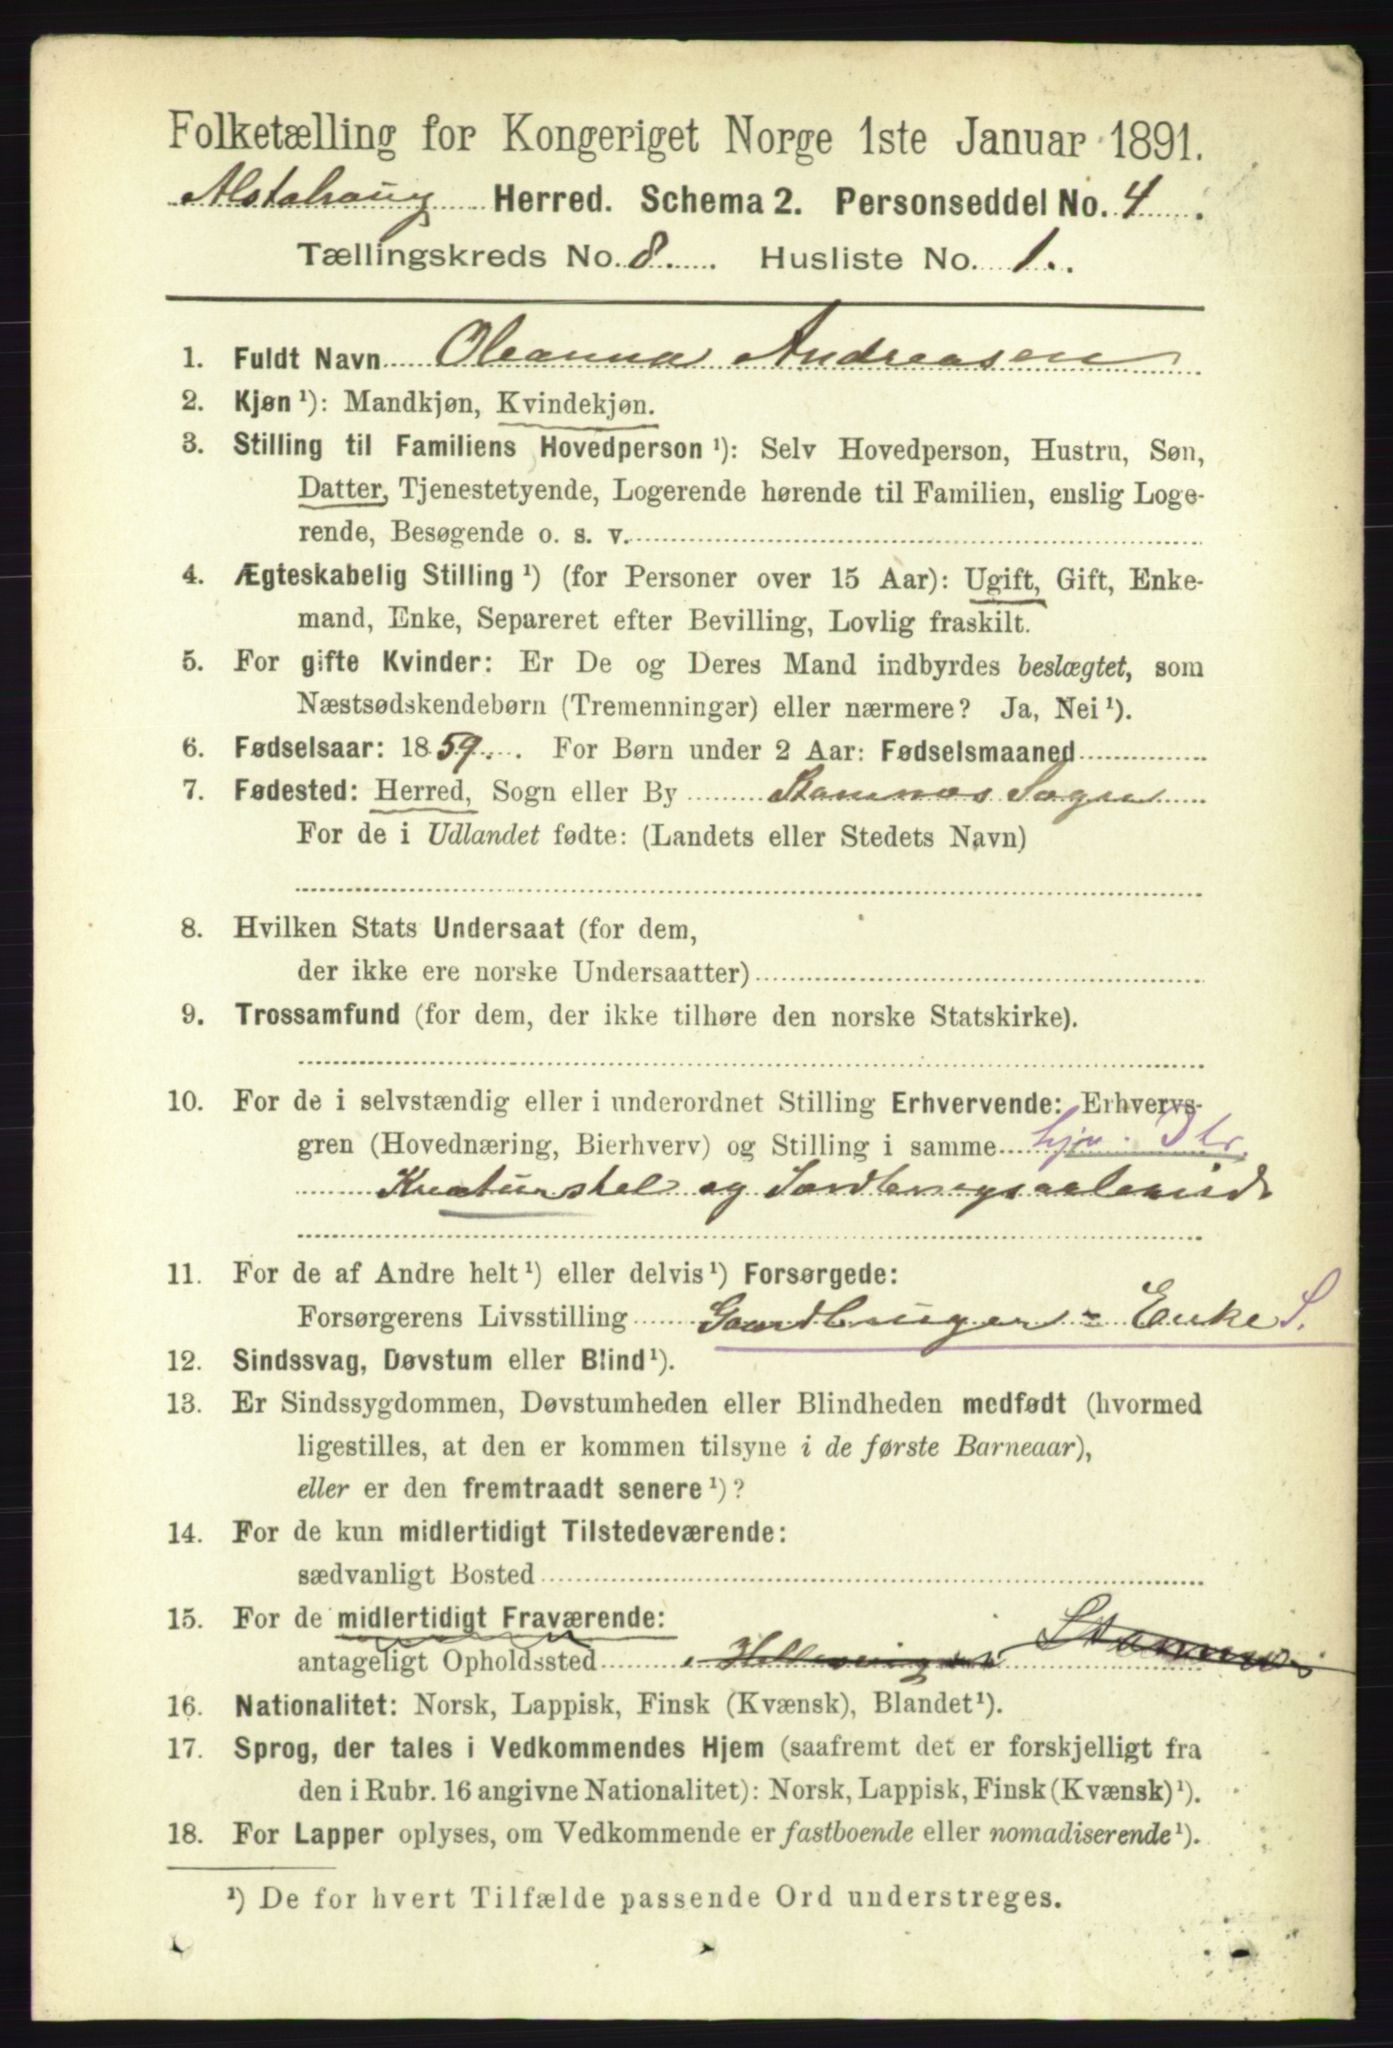 Folketælling for Kongeriget Norge 1ste Januar 1891.
Alstahoug Herred. Schema 2. Personseddel No. 4
Tællingskreds No. 8. Husliste No. 1.
1. Fuldt Navn Oleanna Andreasen
2. Kjøn ¹): Mandkjøn, Kvindekjøn.
3. Stilling til Familiens Hovedperson ¹): Selv Hovedperson, Hustru, Søn,
Datter, Tjenestetyende, Logerende hørende til Familien, enslig Loge-
rende, Besøgende o. s. v.
4. Ægteskabelig Stilling ¹) (for Personer over 15 Aar): Ugift, Gift, Enke-
mand, Enke, Separeret efter Bevilling, Lovlig fraskilt.
5. For gifte Kvinder: Er De og Deres Mand indbyrdes beslægtet, som
Næstsødskendebørn (Tremenninger) eller nærmere? Ja, Nei ¹).
6. Fødselsaar: 1859. For Børn under 2 Aar: Fødselsmaaned
7. Fødested: Herred, Sogn eller By Stamnes Sogn
For de i Udlandet fødte: (Landets eller Stedets Navn)
8. Hvilken Stats Undersaat (for dem,
der ikke ere norske Undersaatter)
9. Trossamfund (for dem, der ikke tilhøre den norske Statskirke).
10. For de i selvstændig eller i underordnet Stilling Erhvervende: Erhvervs-
gren (Hovednæring, Bierhverv) og Stilling i samme
Kreaturstel og
11. For de af Andre helt ¹) eller delvis ¹) Forsørgede:
Forsørgerens Livsstilling Gaardbruger - Enke S.
12. Sindssvag, Døvstum eller Blind ¹).
13. Er Sindssygdommen, Døvstumheden eller Blindheden medfødt (hvormed
ligestilles, at den er kommen tilsyne i de første Barneaar),
eller er den fremtraadt senere ¹)?
14. For de kun midlertidigt Tilstedeværende:
sædvanligt Bosted
15. For de midlertidigt Fraværende:
antageligt Opholdssted
16. Nationalitet: Norsk, Lappisk, Finsk (Kvænsk), Blandet ¹).
17. Sprog, der tales i Vedkommendes Hjem (saafremt det er forskjelligt fra
den i Rubr. 16 angivne Nationalitet): Norsk, Lappisk, Finsk (Kvænsk) ¹).
18. For Lapper oplyses, om Vedkommende er fastboende eller nomadiserende ¹).
¹) De for hvert Tilfælde passende Ord understreges.